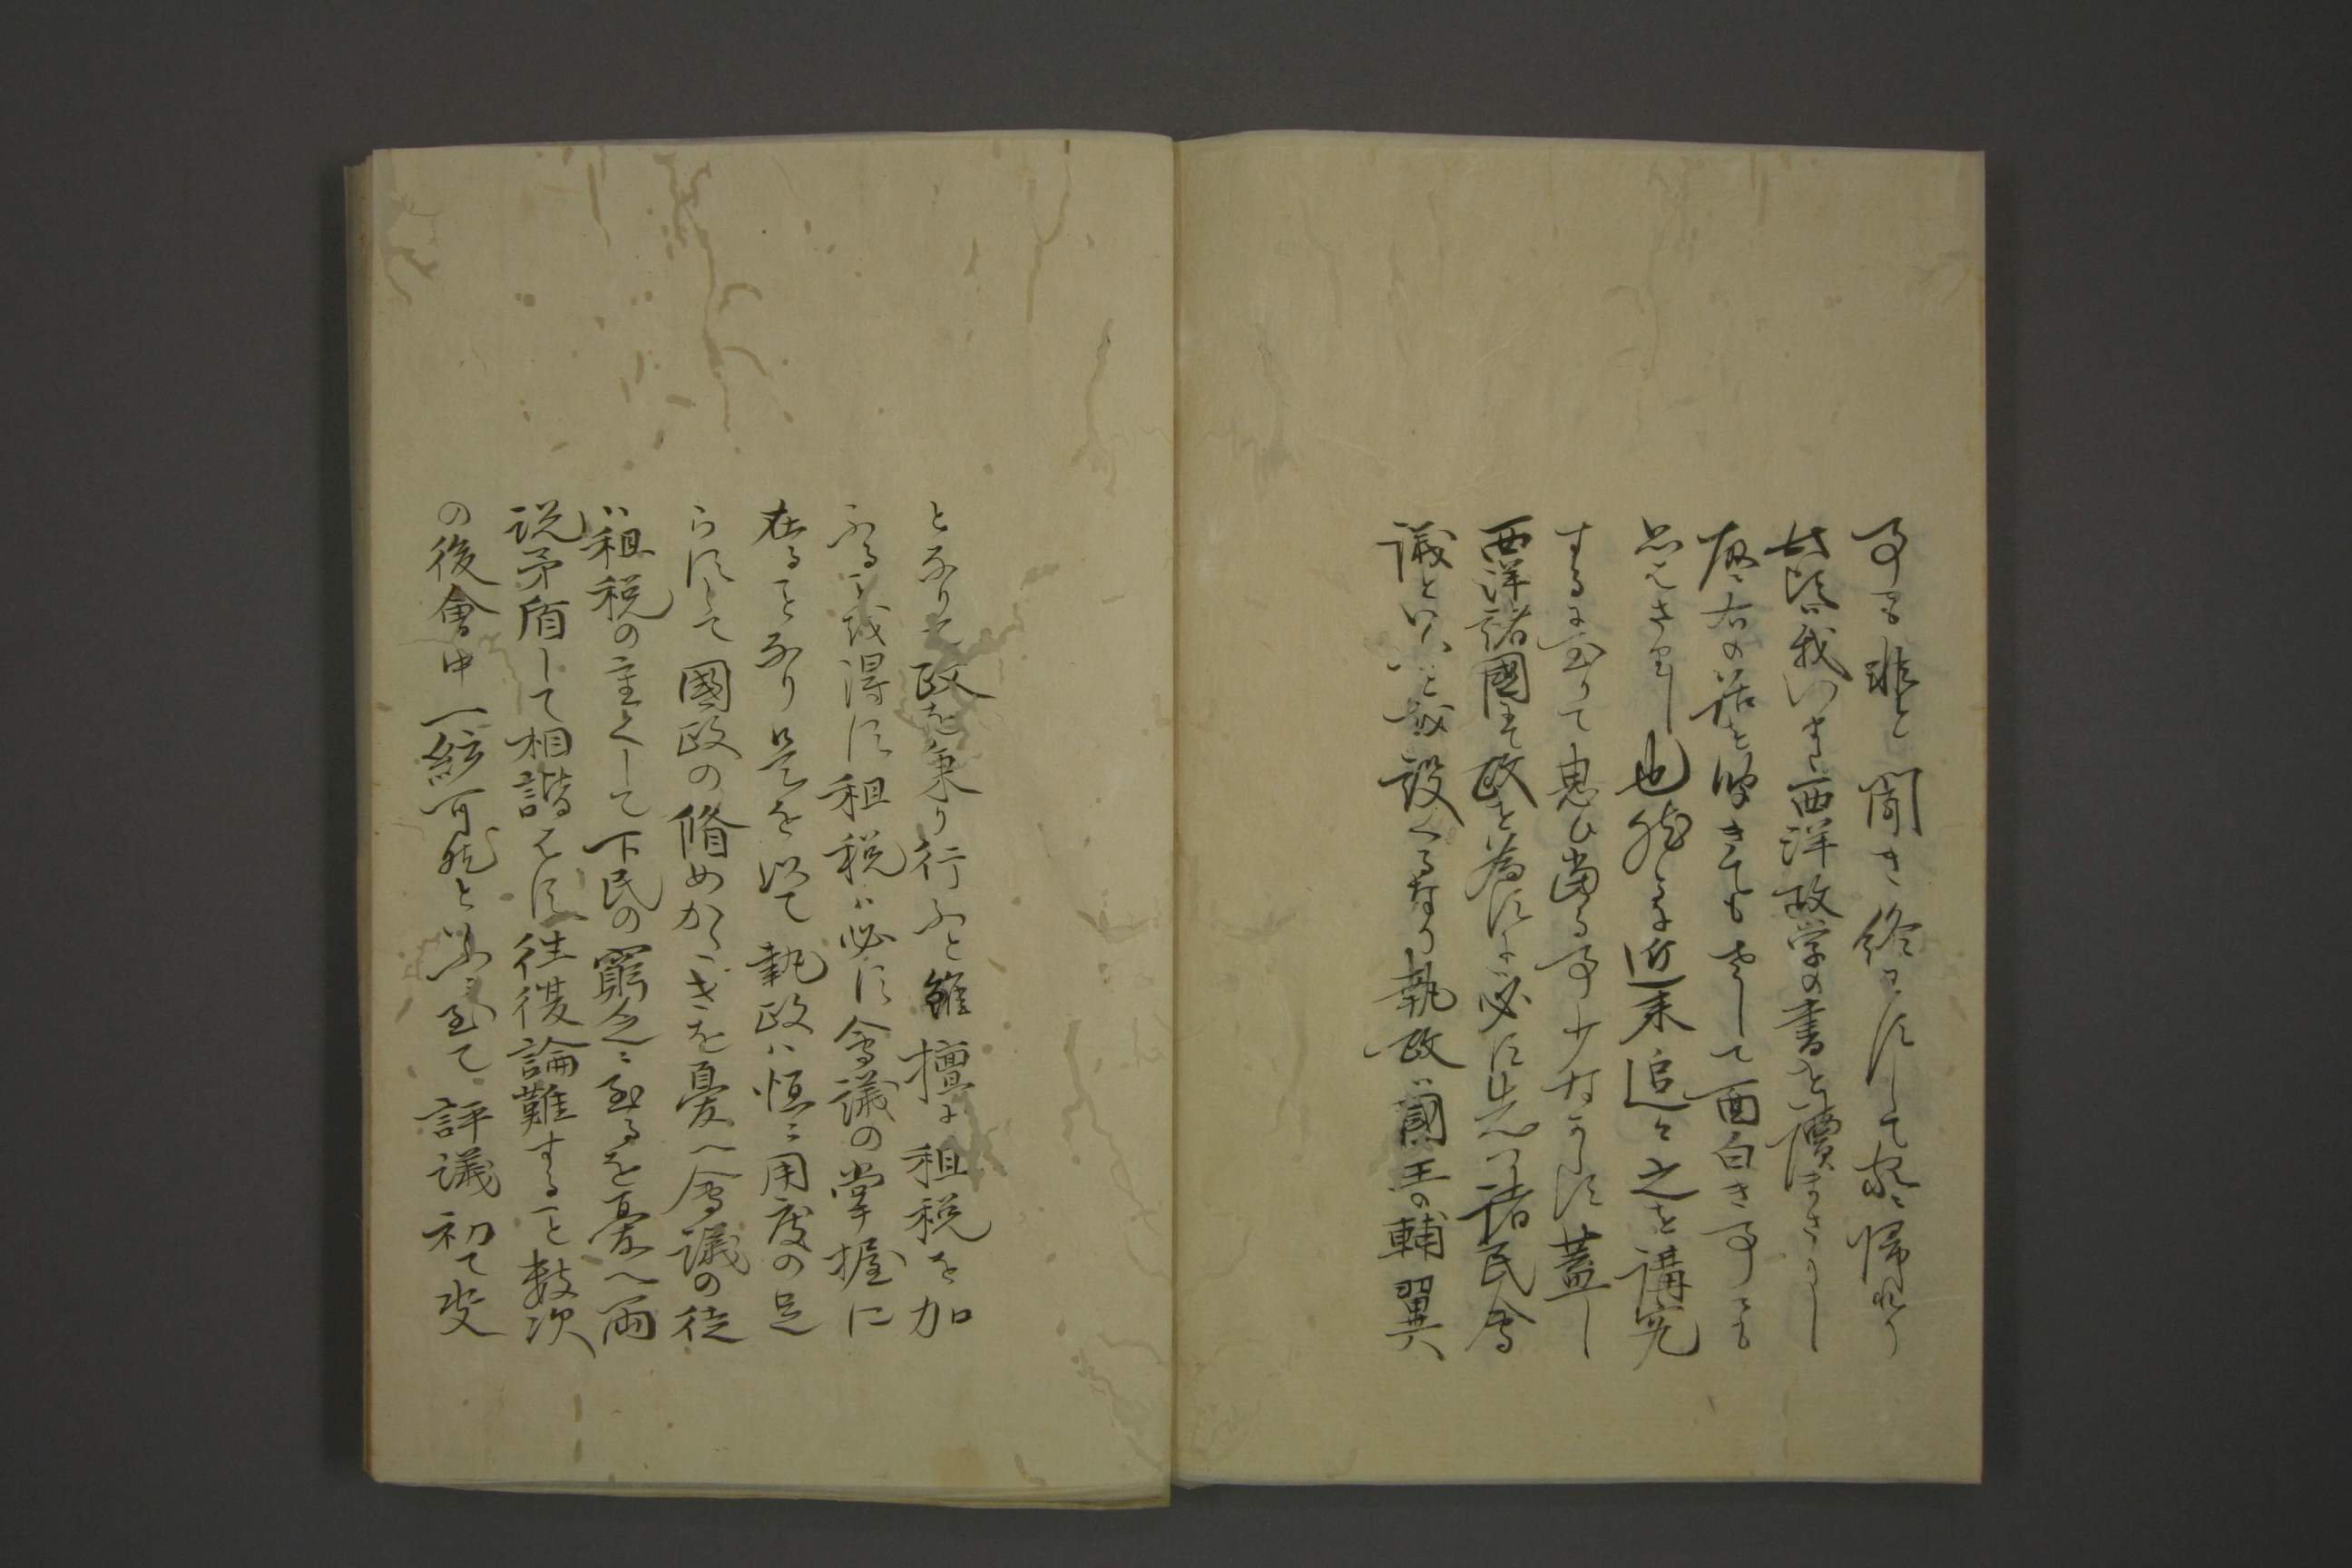 事も難と聞き終らにして家に帰れり
此頃は我いまた西洋政学の書を讀まさりし
故に右の話を聞きても更して面白き事とも
思はさりし也然るに近来追々之を講究
するに至りて思ひ當る事少なからに蓋し
西洋諸國にて政を為にに必に先つ諸民會
議といふことを設くるなり執政は國王の輔翼
となりて政を秉り行ふと雖擅に租税を加
ふることを得に租税は必に會議の掌握に
在ることなり是を以て執政は恒に用度の足
らにして國政の脩めかたきを憂へ會議の徒
は租税の重くして下民の窮乏に至るを憂へ両
説矛盾して相諧はに往復論難すること数次
の後會中一統可然と以ふに至て評議初て定